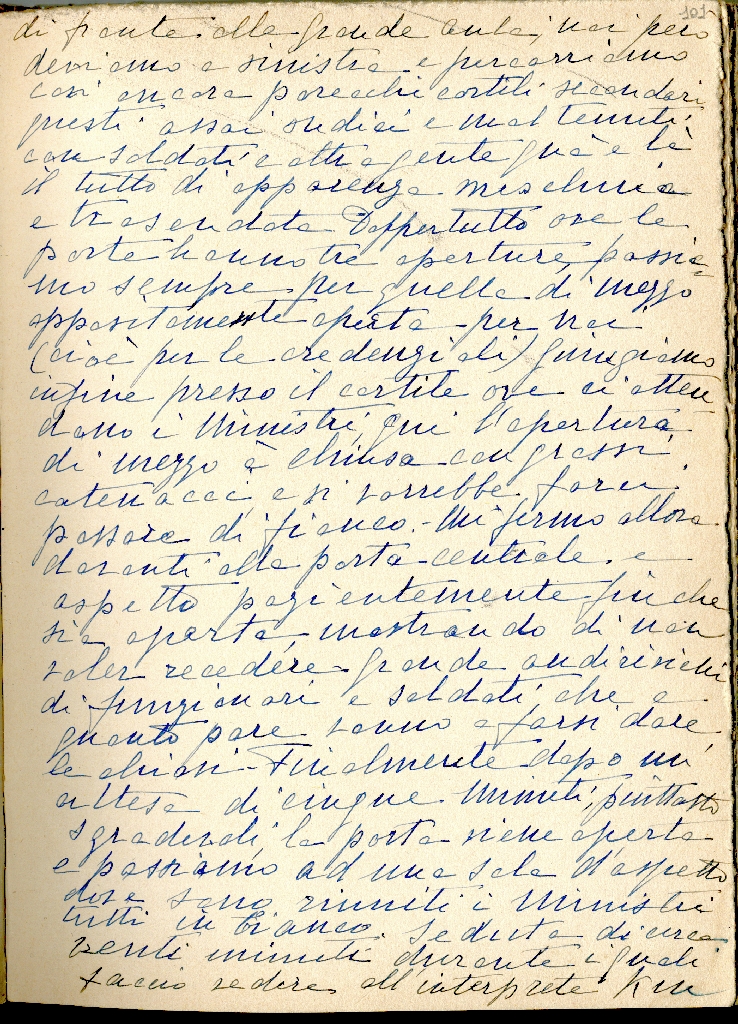 101
di fronte alla grande aula; noi però
deviamo a sinistra e percorriamo
così ancora parecchi cortili secondari,
questi assai sudici e mal tenuti,
con soldati e altra gente quà e là
il tutto di apparenza meschina
e trasandata Dappertutto ove le
porte hanno tre aperture, passia=
mo sempre per quella di mezzo
appositamente aperta per noi
(cioè per le credenziali) Giungiamo
infine presso il cortile ove ci atten
dono i Ministri, qui l'apertura
di mezzo è chiusa con grossi
catenacci, e si vorrebbe farci
passare di fianco.- Mi fermo allora
davanti alla porta centrale e
aspetto pazientemente finché
sia aperta, mostrando di non
voler recedere. Grande andirivieni
di funzionari e soldati, che a
quanto pare vanno a farsi dare
le chiavi - Finalmente dopo un'
attesa di cinque minuti, piuttosto
sgradevoli, la porta viene aperta
e passiamo ad una sala d'aspetto
dove sono riuniti i Ministri
tutti in bianco. Seduta di circa
venti minuti durante i quali
faccio vedere all'interprete Kim